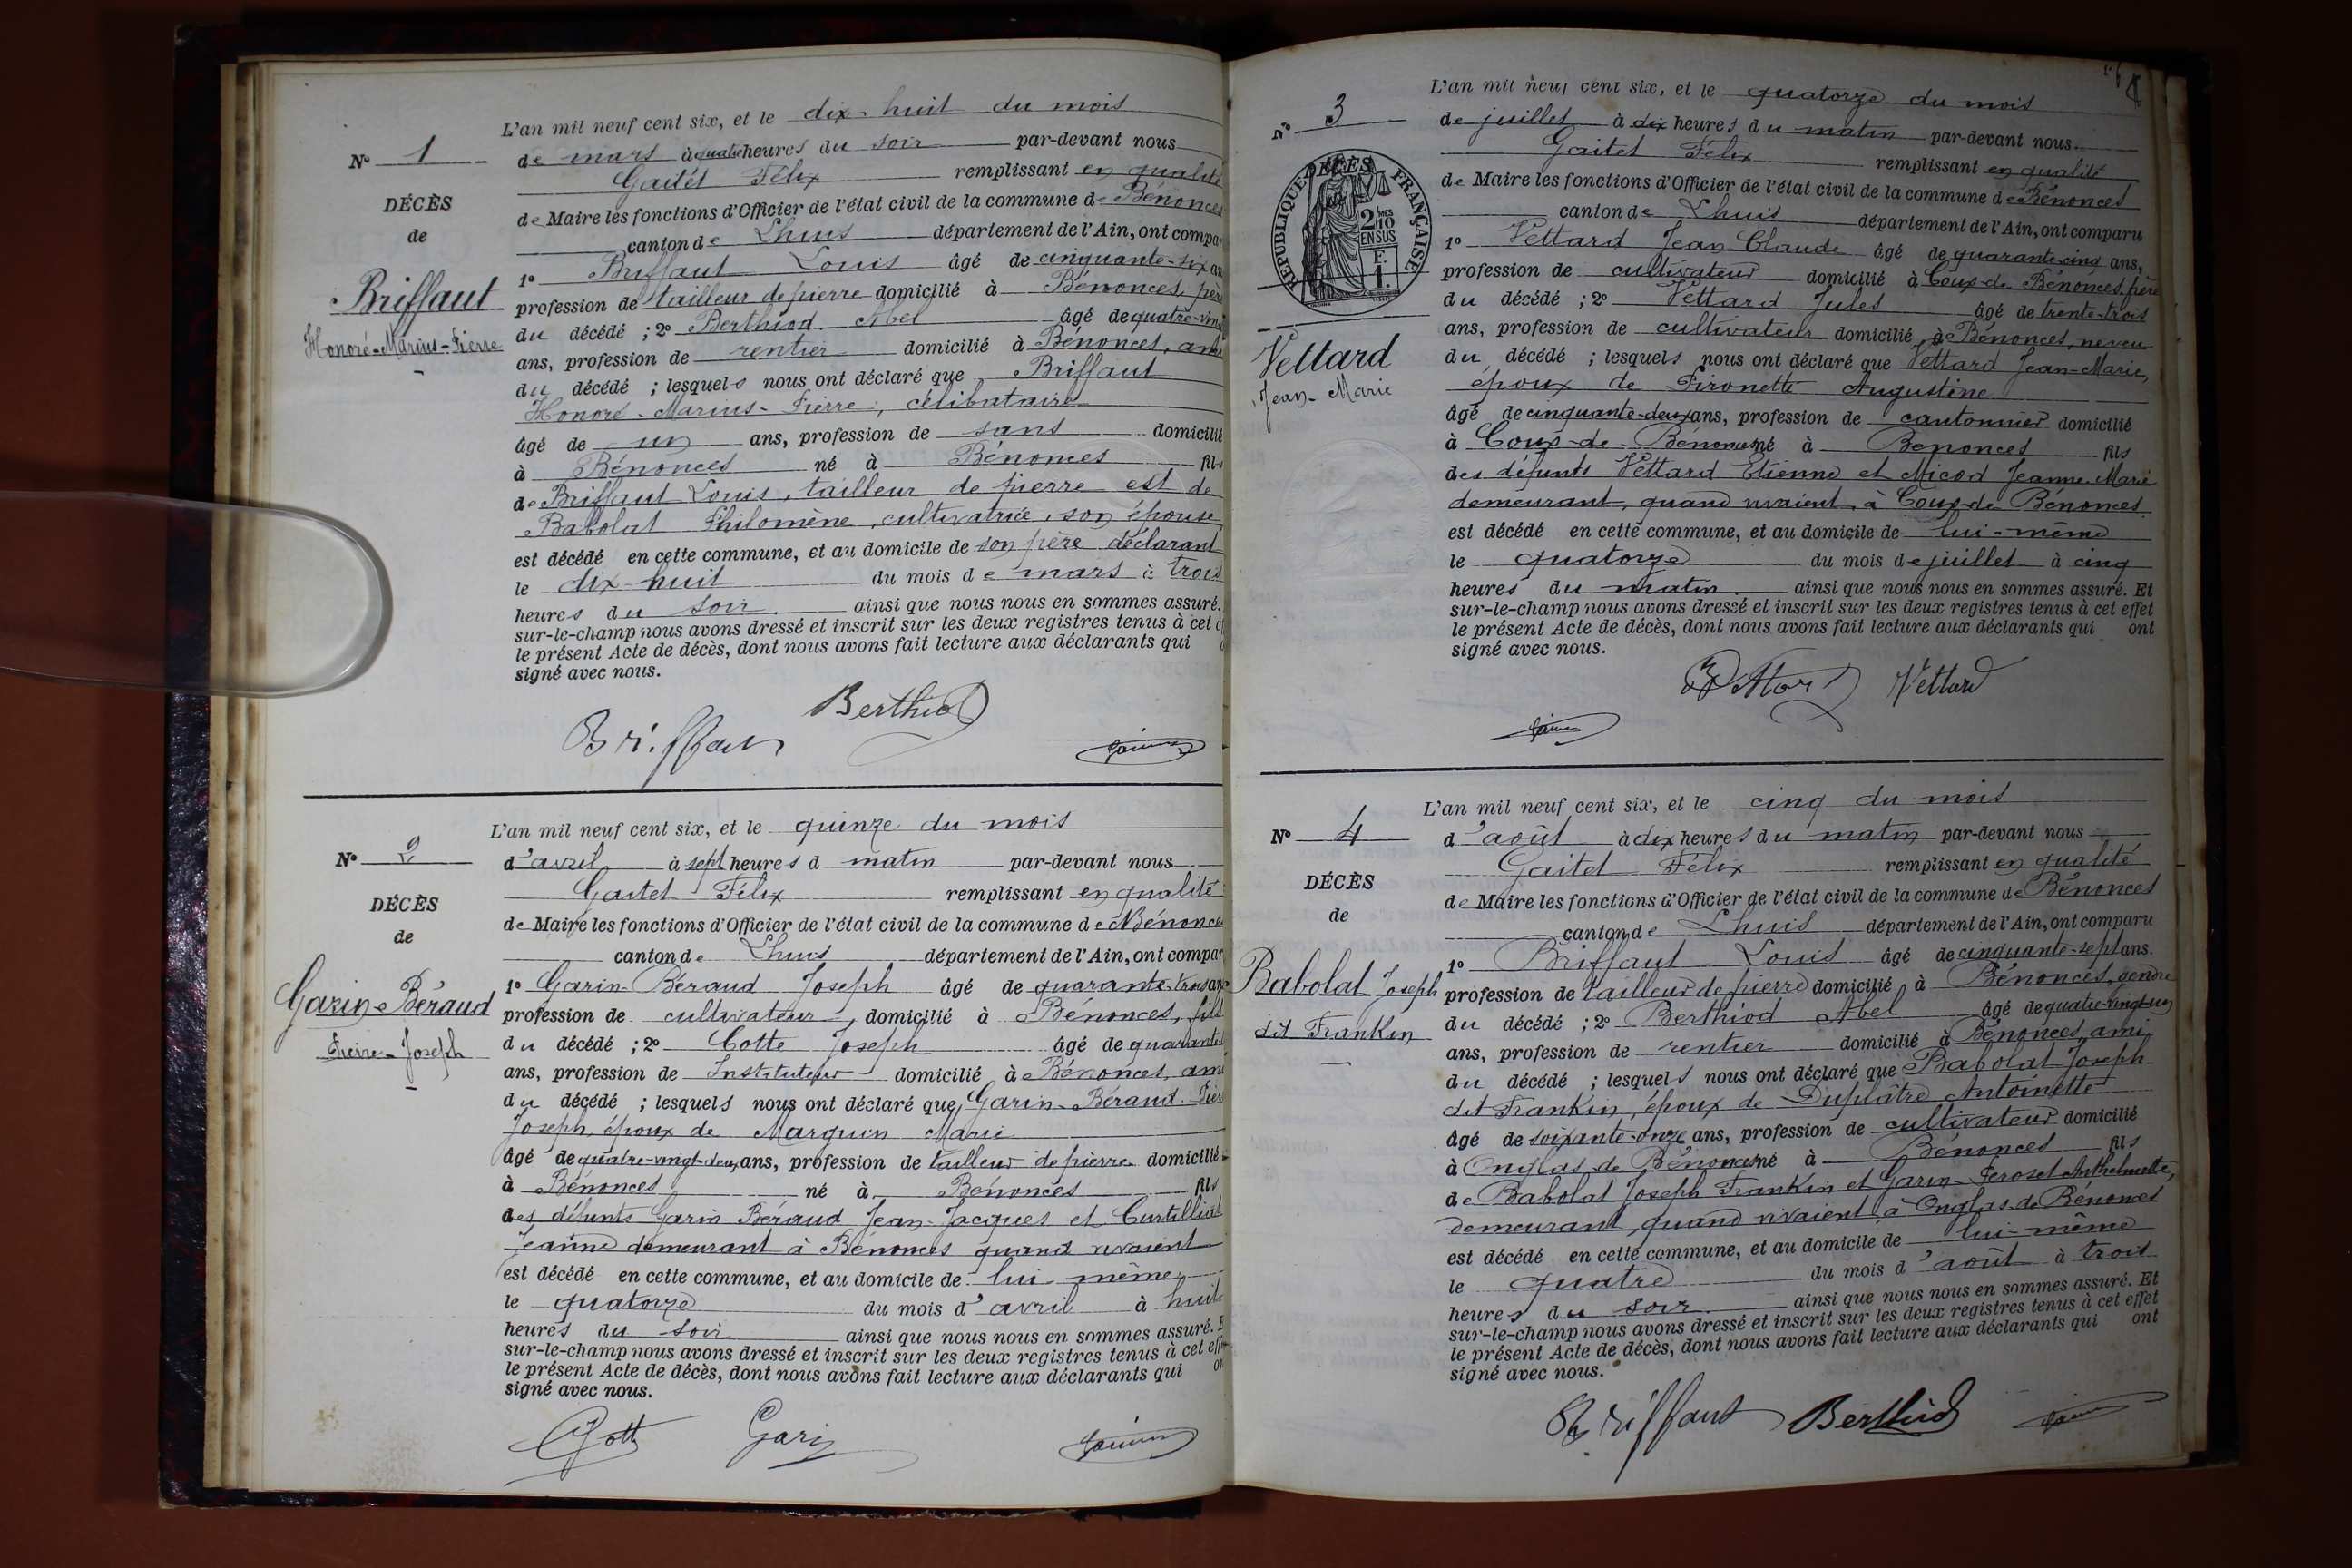 N° 1
DÉCÈS
de
Briffaut
Honoré-Marius-Pierre
L'an mil neuf cent six, et le dix-huit du mois
de mars à quatre heures du soir par-devant nous
Gaitet Félix remplissant en qualité
de Maire les fonctions d'Officier de l'état civil de la commune de Bénonces
canton de Lhuis département de l'Ain, ont compar
1° Briffaut Louis âgé de cinquante-six an
profession de tailleur de pierre domicilié à Bénonces, père
du décédé ; 2° Berthiod Abel âgé de quatre-vingt
ans, profession de rentier domicilié à Bénonces, ami
du décédé ; lesquels nous ont déclaré que Briffaut
Honoré-Marius-Pierre, célibataire
âgé de un ans, profession de sans domicilié
à Bénonces né à Bénonces fils
de Briffaut Louis, tailleur de pierre est de
Babolat Philomène, cultivatrice, son épouse
est décédé en cette commune, et au domicile de son père déclarant
le dix-huit du mois de mars à trois
heures du soir ainsi que nous nous en sommes assuré.
sur-le-champ nous avons dressé et inscrit sur les deux registres tenus à cet
le présent Acte de décès, dont nous avons fait lecture aux déclarants qui
signé avec nous.
Berthiod
Briffaut
N° 2
DÉCÈS
de
Garin-Béraud
Pierre-Joseph
L'an mil neuf cent six, et le quinze du mois
d'avril à sept heures d matin par-devant nous
Gaitet Félix remplissant en qualité
de Maire les fonctions d'Officier de l'état civil de la commune de Bénonces
canton de Lhuis département de l'Ain, ont compar
1° Garin-Béraud Joseph âgé de quarante-trois ans
profession de cultivateur, domicilié à Bénonces, fils
du décédé ; 2° Cotte Joseph âgé de quarante
ans, profession de Instituteur domicilié à Bénonces, ami
du décédé ; lesquels nous ont déclaré que Garin-Béraud Pier
Joseph, époux de Marguin Marie
âgé de quatre-vingt-deux ans, profession de tailleur de pierre domicilié
à Bénonces né à Bénonces fils
des défunts Garin-Béraud Jean-Jacques et Curtilliat
Jeanne demeurant à Bénonces quand vivaient
est décédé en cette commune, et au domicile de lui-même
le quatorze du mois d'avril à huit
heures du soir ainsi que nous nous en sommes assuré. E
sur-le-champ nous avons dressé et inscrit sur les deux registres tenus à cet eff
le présent Acte de décès, dont nous avons fait lecture aux déclarants qui on
signé avec nous.
Cotte Garin
N° 3
RÉPUBLIQUE FRANÇAISE
DÉCÈS
2/10
EN SUS
F.
1.
Vettard
Jean-Marie
L'an mil neuf cent six, et le quatorze du mois
de juillet à dix heures du matin par-devant nous
Gaitet Félix remplissant en qualité
de Maire les fonctions d'Officier de l'état civil de la commune de Bénonces
canton de Lhuis département de l'Ain, ont comparu
1° Vettard Jean Claude âgé de quarante-cinq ans,
profession de cultivateur domicilié à Coux-de Bénonces, frère
du décédé ; 2° Vettard Jules âgé de trente-trois
ans, profession de cultivateur domicilié à Bénonces, neveu
du décédé ; lesquels nous ont déclaré que Vettard Jean-Marie,
époux de Pironette Augustine
âgé de cinquante-deux ans, profession de cantonnier domicilié
à Coux-de-Bénonces né à Bénonces fils
des défunts Vettard Etienne et Micod Jeanne-Marie
demeurant, quand vivaient, à Coux-de Bénonces
est décédé en cette commune, et au domicile de lui-même
le quatorze du mois de juillet à cinq
heures du matin ainsi que nous nous en sommes assuré. Et
sur-le-champ nous avons dressé et inscrit sur les deux registres tenus à cet effet
le présent Acte de décès, dont nous avons fait lecture aux déclarants qui ont
signé avec nous.
Vettard Vettard
N° 4
DÉCÈS
de
Babolat Joseph
dit Frankin
L'an mil neuf cent six, et le cinq du mois
d'août à dix heures du matin par-devant nous
Gaitet Félix remplissant en qualité
de Maire les fonctions d'Officier de l'état civil de la commune de Bénonces
canton de Lhuis département de l'Ain, ont comparu
1° Briffaut Louis âgé de cinquante-sept ans.
profession de tailleur de pierre domicilié à Bénonces, gendre
du décédé ; 2° Berthiod Abel âgé de quatre-vingt-un
ans, profession de rentier domicilié à Bénonces, ami
du décédé ; lesquels nous ont déclaré que Babolat Joseph
dit Frankin, époux de Duplâtre Antoinette
âgé de soixante-onze ans, profession de cultivateur domicilié
à Onglas de Bénonces né à Bénonces fils
de Babolat Joseph Frankin et Garin-Peroset Anthelmette,
demeurant, quand vivaient à Onglas-de Bénonces
est décédé en cette commune, et au domicile de lui-même
le quatre du mois d'août à trois
heures du soir ainsi que nous nous en sommes assuré. Et
sur-le-champ nous avons dressé et inscrit sur les deux registres tenus à cet effet
le présent Acte de décès, dont nous avons fait lecture aux déclarants qui ont
signé avec nous.
Briffaut Berthiod